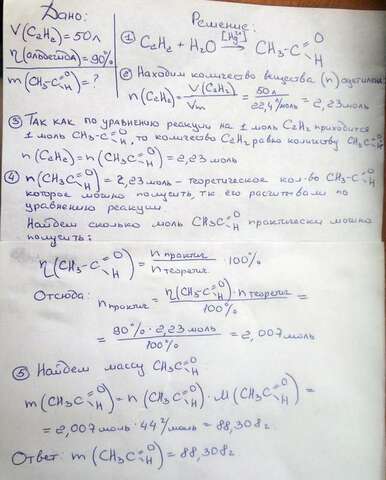 Дано:
V(C₂H₂)=50л
η(альдегида)=90%
m(CH₃-C(=O)H)=?
Решение:
① C₂H₂ + H₂O →[Hg²⁺] CH₃-C(=O)H
② Находим количество вещества (n) ацетилена:
n(C₂H₂)= V(C₂H₂)/Vm = 50л/22,4 л/моль = 2,23моль
③ Так как по уравнению реакции на 1 моль C₂H₂ приходится
1 моль CH₃-C(=O)H, то количество C₂H₂ равно количеству CH₃C(=O)H
n(C₂H₂)=n(CH₃C(=O)H)=2,23моль
④ n(CH₃C(=O)H)=2,23моль – теоретическое кол-во CH₃-C(=O)H
которое можно получить, т.к. его расчитывали по
уравнению реакции.
Найдем сколько моль CH₃C(=O)H практически можно
получить:
η(CH₃-C(=O)H)= n практич/n теоретич. · 100%
Отсюда:
n практич = η(CH₃-C(=O)H)·n теоретич/100% =
= 90%·2,23моль/100% = 2,007моль
⑤ Найдем массу CH₃C(=O)H
m(CH₃C(=O)H)=n(CH₃C(=O)H)·M(CH₃C(=O)H)=
=2,007моль·44г/моль=88,308г.
Ответ: m(CH₃C(=O)H)=88,308г